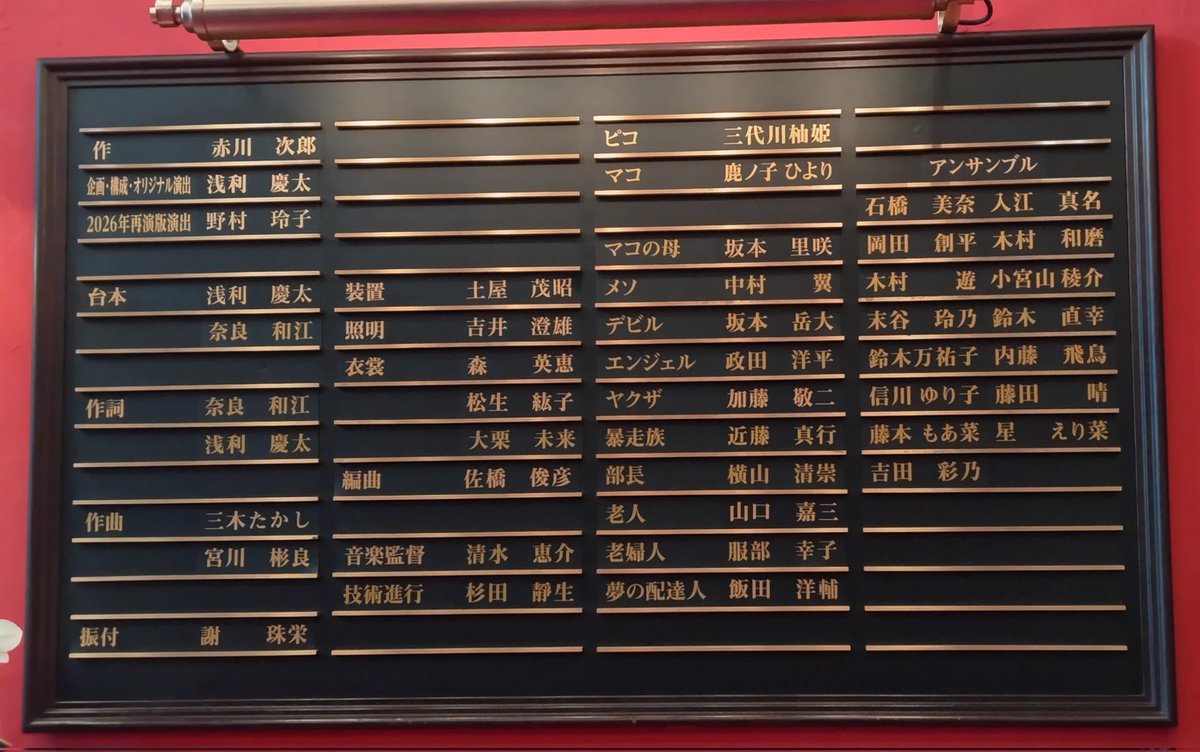 作 赤川 次郎
企画・構成・オリジナル演出 浅利 慶太
2026年再演版演出 野村 玲子
台本 浅利 慶太
奈良 和江
作詞 奈良 和江
浅利 慶太
作曲 三木たかし
宮川 彬良
振付 謝 珠栄
装置 土屋 茂昭
照明 吉井 澄雄
衣裳 森 英恵
松生 紘子
大栗 未来
編曲 佐橋 俊彦
音楽監督 清水 恵介
技術進行 杉田 靜生
ピコ 三代川柚姫
マコ 鹿ノ子 ひより
マコの母 坂本 里咲
メソ 中村 翼
デビル 坂本 岳大
エンジェル 政田 洋平
ヤクザ 加藤 敬二
暴走族 近藤 真行
部長 横山 清崇
老人 山口 嘉三
老婦人 服部 幸子
夢の配達人 飯田 洋輔
アンサンブル
石橋 美奈 入江 真名
岡田 創平 木村 和磨
木村 遊 小宮山 稜介
末谷 玲乃 鈴木 直幸
鈴木万祐子 内藤 飛鳥
信川 ゆり子 藤田 晴
藤本 もあ菜 星 えり菜
吉田 彩乃